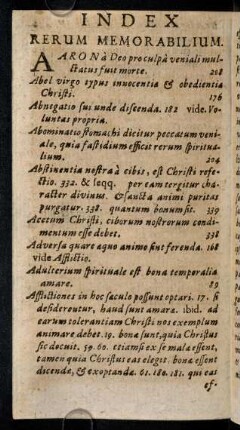 INDEX
RERUM MEMORABILIUM.
AARON à Deo pro culpâ veniali mul-
ctatus fuit morte. 208
Abel virgo typus innocentia & obedientia
Christi. 176
Abnegatio sui unde discenda. 182 vide. Vo-
luntas propria.
Abominatio stomachi dicitur peccatum veni-
ale, quia fastidium efficit rerum spiritua-
lium. 204
Abstinentia nostra à cibis, est Christi refe-
ctio. 332. & seqq. per eam tergitur cha-
racter divinus. & sancta animi puritas
purgatur. 338. quantum bonum sit. 339
Acetum Christi, ciborum nostrorum condi-
mentum esse debet. 338
Adversa quare aquo animo sint ferenda. 168
vide Afflictio.
Adulterium spirituale est bona temporalia
amare. 89
Afflictiones in hoc saculo possunt optari. 17. si
desiderentur, haud sunt amara. ibid. ad
earum tolerantiam Christi nos exemplum
animare debet. 19. bona sunt, quia Christus
sic docuit. 59. 60. etiamsi ex se mala essent,
tamen quia Christus eas elegit. bona essent
dicenda, & exoptanda. 61. 180. 181. qui eas
ef-